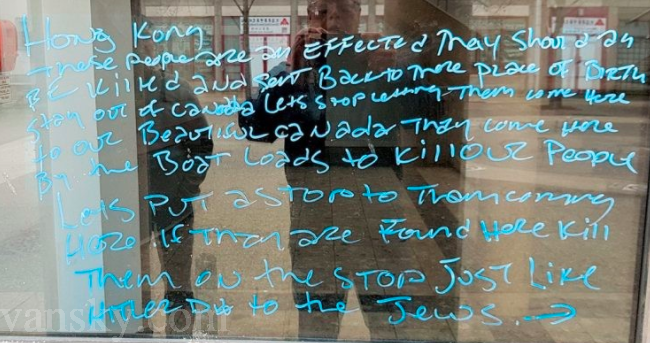 HONG KONG
These People are all EFFECTEd They Should all
BE Killed and Sent Back to There Place of BIRTH
Stay out of Canada Lets stop Letting Them come Here
to our Beautiful Canada They come Here
By the Boat Loads to Kill OUR People
Lets PUT a STOP to Them coming
Here If They are Found Here Kill
Them on the STOP Just Like
HITLER Did to the Jews. →
vansky.com